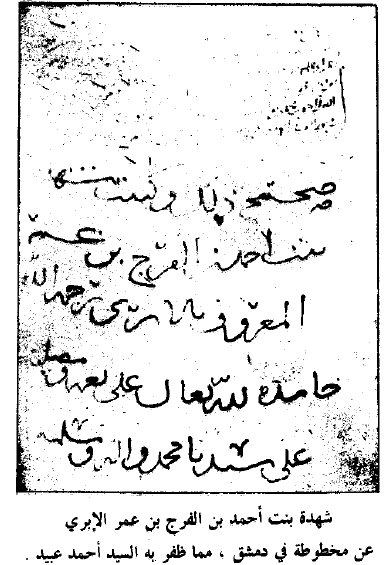 صحيح ذلك وكتبت شهدة
بنت أحمد بن الفرج بن عمر
المعروف بالابري رحمه الله
حامدة لله تعالى على نعمه ومصلية
على سيدنا محمد واله ومسلمة
شهدة بنت أحمد بن الفرج بن عمر الإبري
عن مخطوطة في دمشق ، مما ظفر به السيد أحمد عبيد .